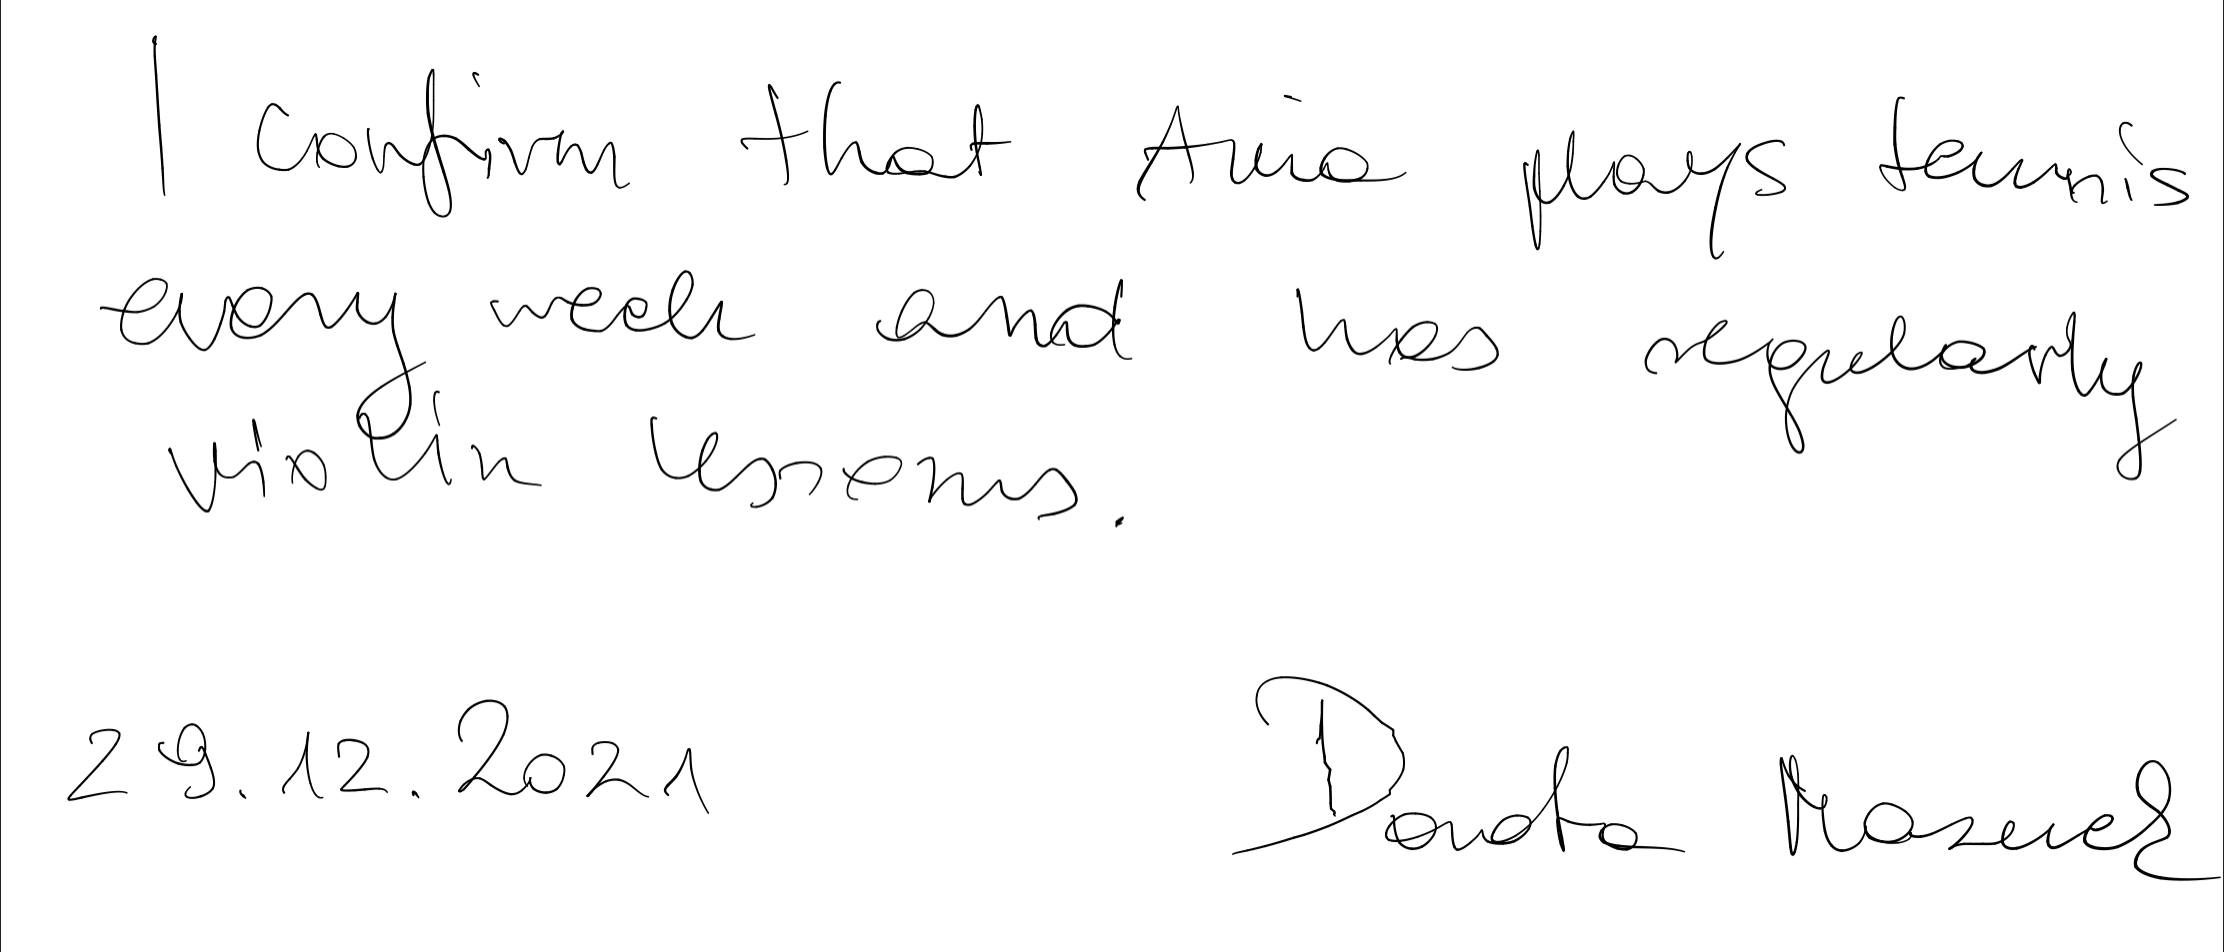 I confirm that Ania plays tennis
every week and has regularly
violin lessons.
29.12.2021 Dorota Mazurek